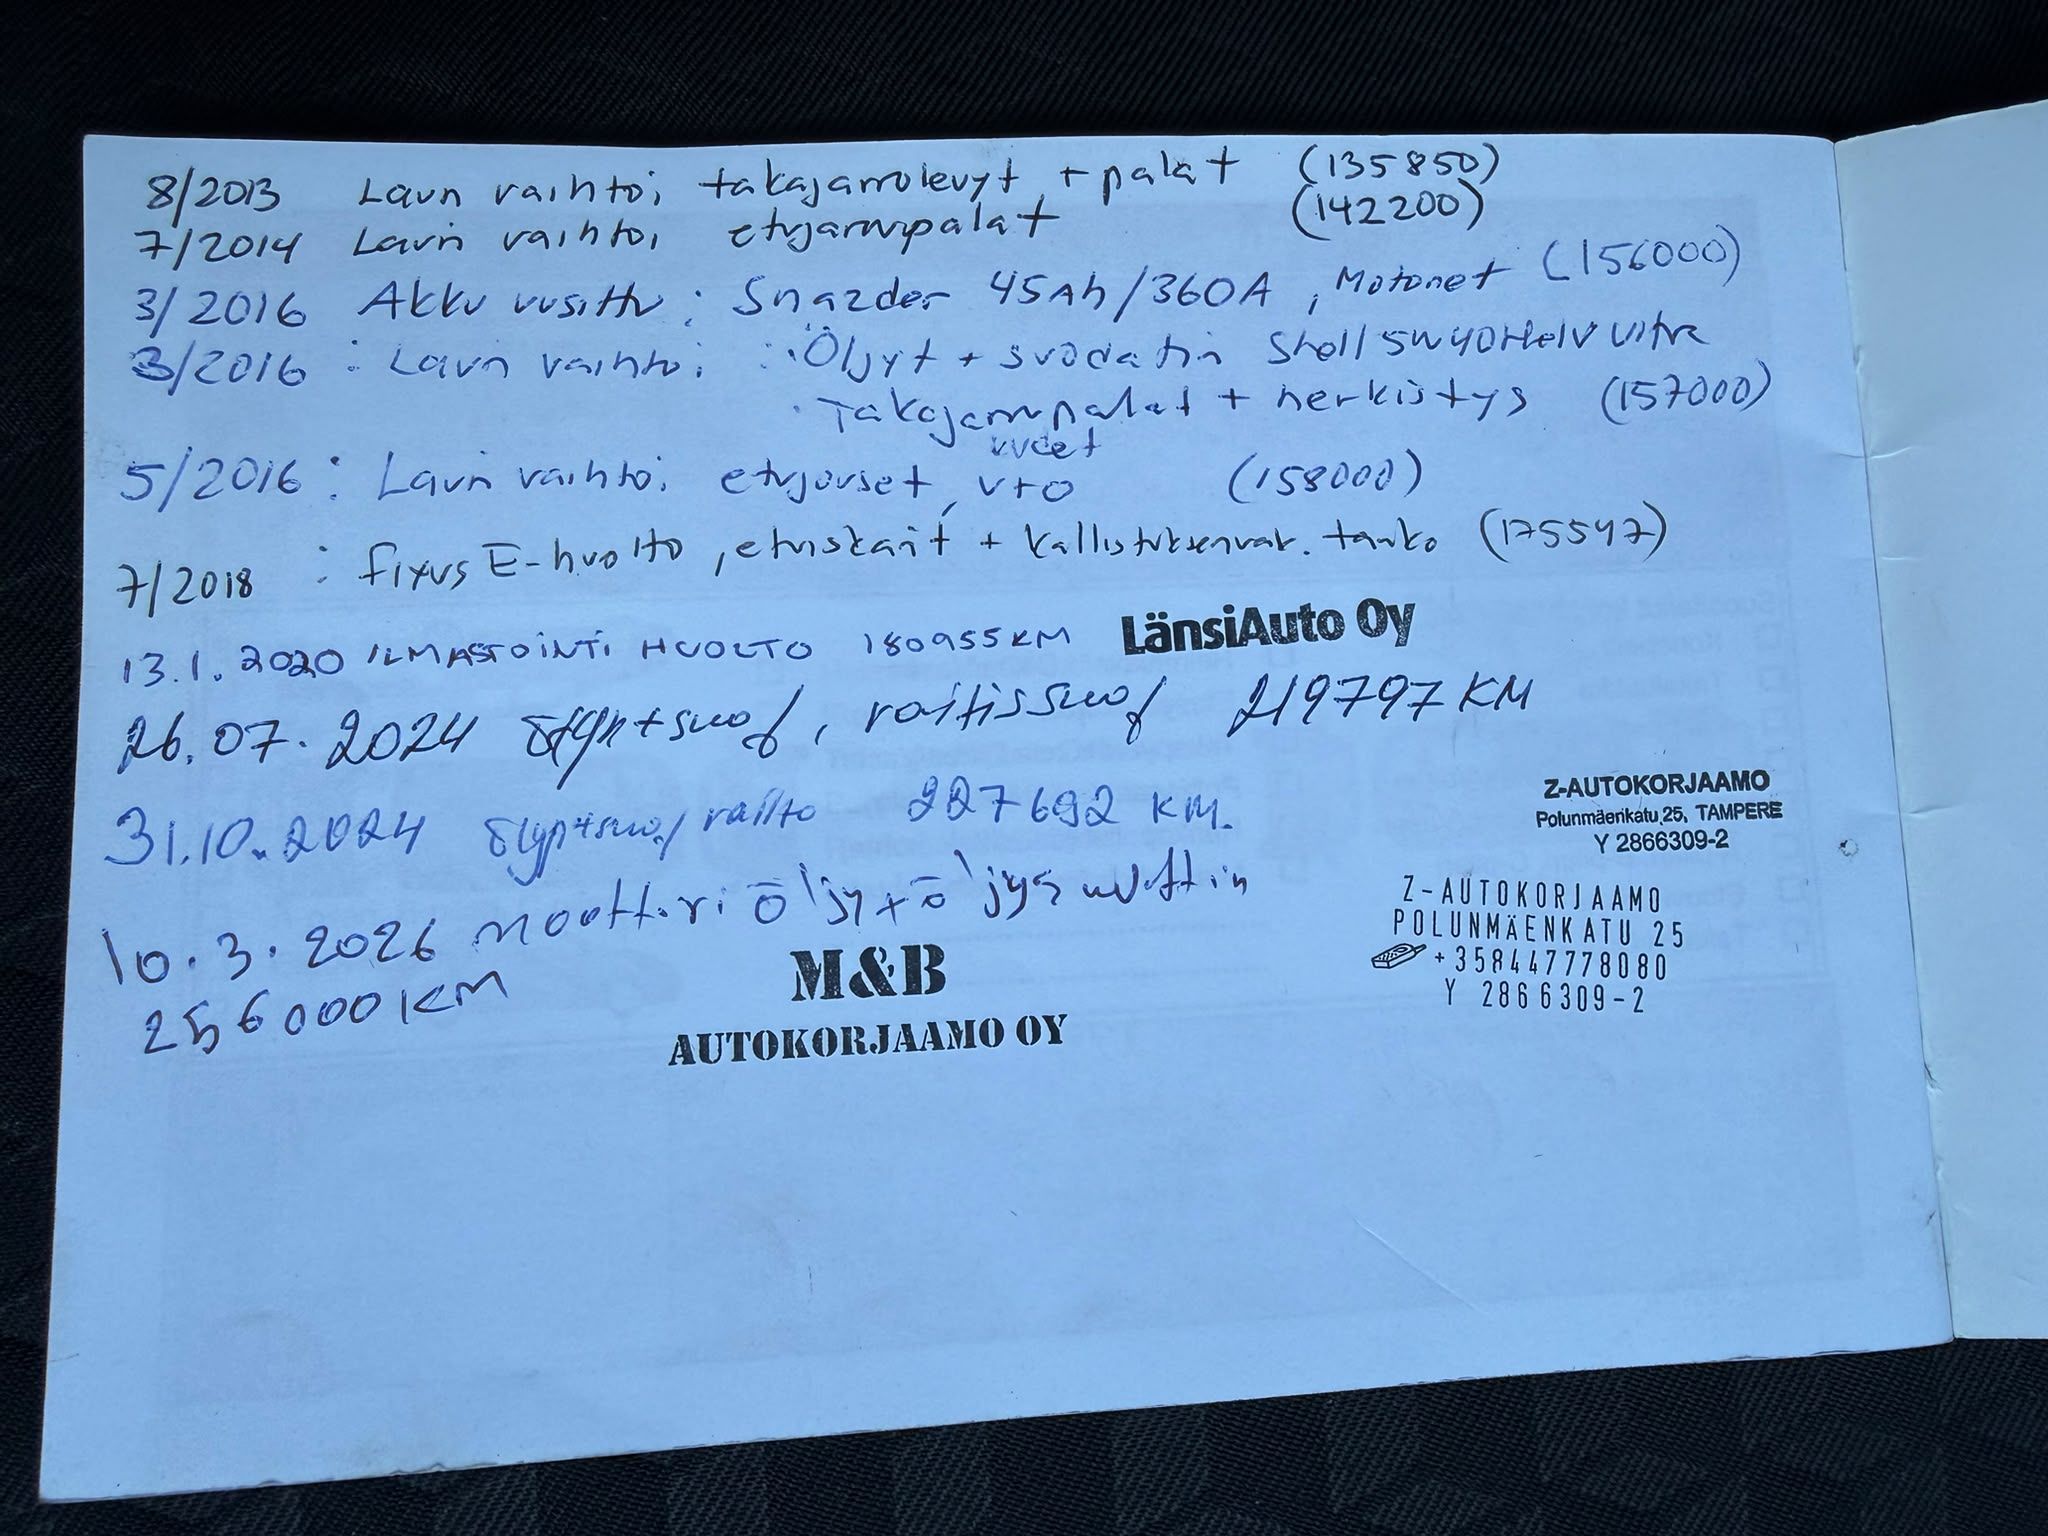 8/2013 Lavn vaihtoi takajarrulevyt + palat (135850)
7/2014 Lavn vaihtoi etujarrupalat (142200)
3/2016 Akku uusittu : Snazder 45Ah/360A , Motonet (156000)
3/2016 : Lavn vaihtoi : Öljyt + suodatin Shell 5W40 Helix Ultra
Takajarrupalat + herkistys (157000)
uudet
5/2016 : Lavn vaihtoi etujouset, VTO (158000)
7/2018 : Fixus E-huolto , etuiskarit + kallistuksenvak. tanko (175547)
13.1.2020 ILMASTOINTI HUOLTO 180955KM LänsiAuto Oy
26.07.2024 öljyt+suod, raitissuod 219797 KM
31.10.2024 öljyt+suod raitis 227692 KM.
Z-AUTOKORJAAMO
Polunmäenkatu 25, TAMPERE
Y 2866309-2
10.3.2026 moottori öljy+öljysuottin
256000KM
M&B
AUTOKORJAAMO OY
Z-AUTOKORJAAMO
POLUNMÄENKATU 25
+358447778080
Y 2866309-2